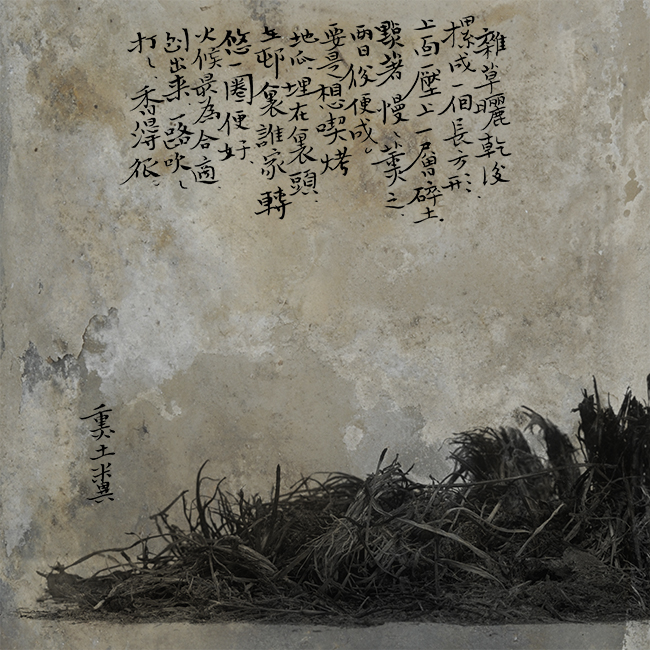 雜草曬乾後
摞成一個長方形.
上面壓上一層碎土.
點著慢〻薰之.
兩日後便成。
要是想喫烤
地瓜.埋在裏頭.
去邨裏誰家轉
悠一圈便好.
火候最為合適
刨出来.一路吹〻
打〻.香得很。
熏土糞